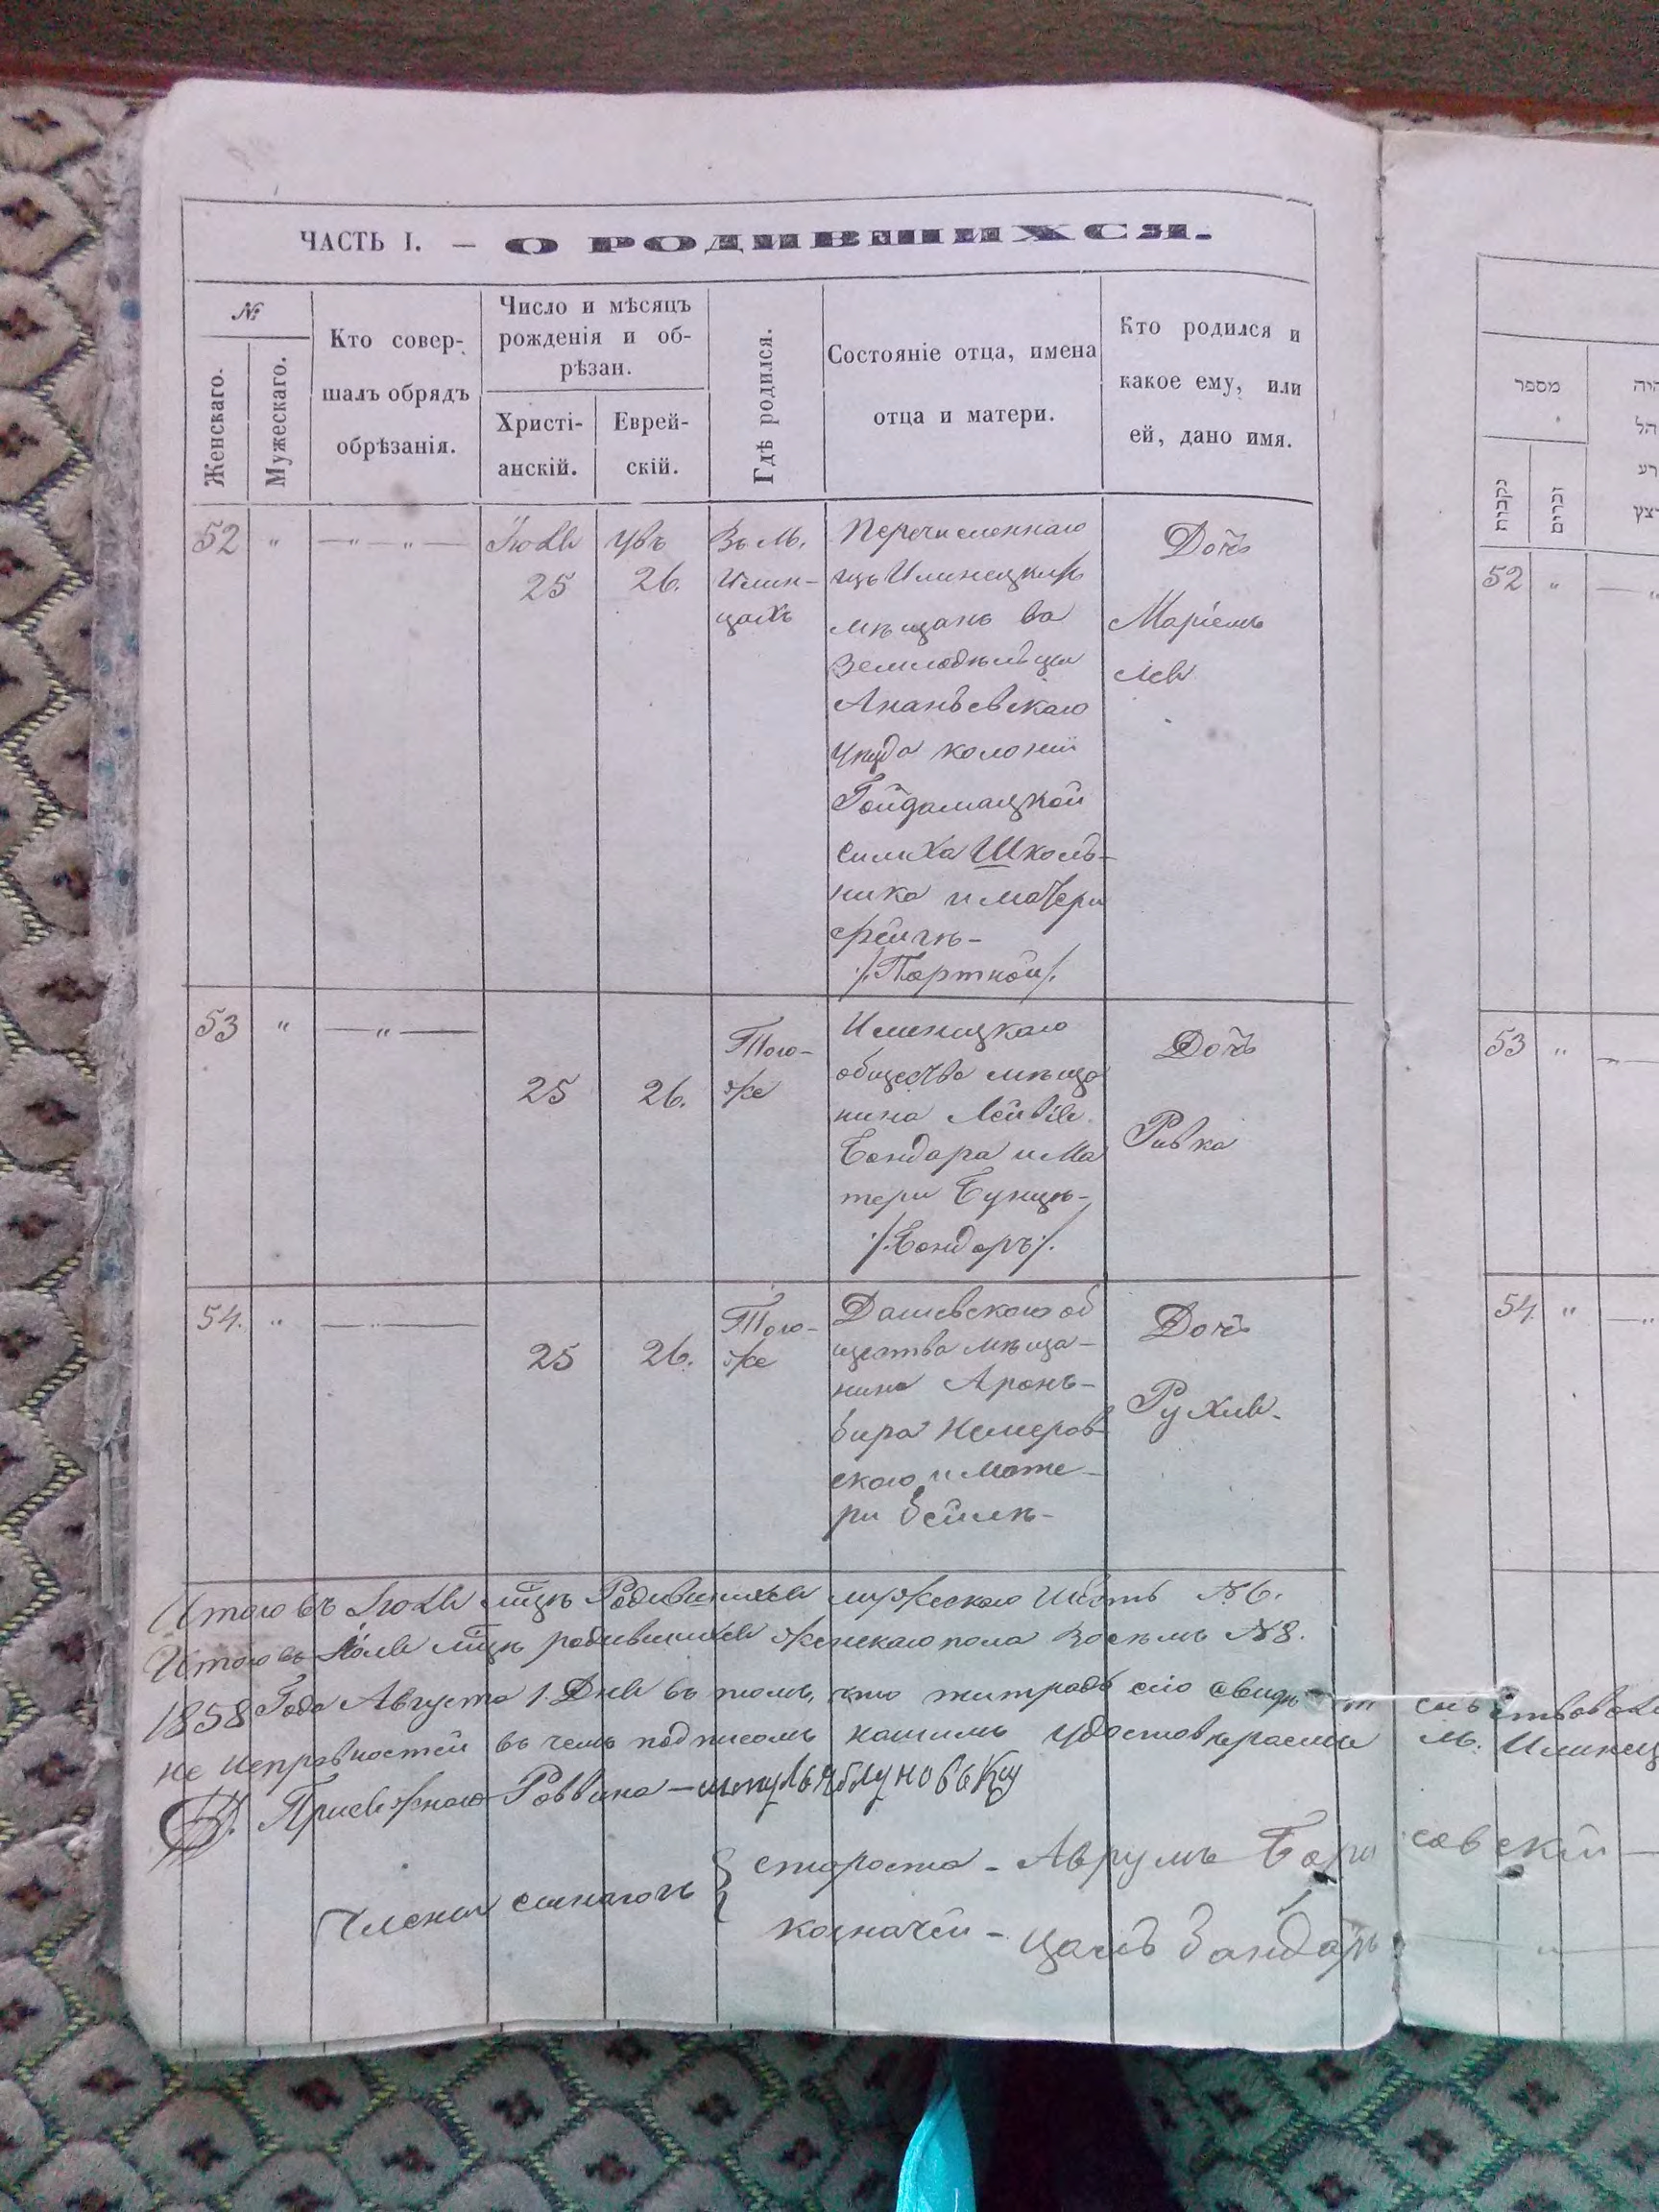 ЧАСТЬ I. — О РОДИВШИХСЯ.
№
Женскаго.
Мужескаго.
Кто совер-
шалъ обрядъ
обрѣзанія.
Число и мѣсяцъ
рожденія и об-
рѣзан.
Христі-
анскій.
Еврей-
скій.
Гдѣ родился.
Состояніе отца, имена
отца и матери.
Кто родился и
какое ему, или
ей, дано имя.
52 " —"—"—
Іюля
25
Увъ
26.
Въ М.
Илин-
цахъ
Перечисленнаго
изъ Илинецкихъ
мѣщанъ въ
Земледѣльцы
Ананьевскаго
Уѣзда колоніи
Гойдамацкой
Симха Школь-
ника и матери
Фейгѣ-
/.Портной/.
Дочь
Маріемъ
Лея
53 " —"—
25
26.
Того-
же
Илинецкаго
общества мѣща
нина Лейвія
Бондара и Ма
тери Бунцѣ-
/.Бондаръ/.
Дочь
Ривка
54. " —"—
25
26.
Того-
же
Дашевскаго об
щества мѣща-
нина Аронъ-
бира Немеров-
скаго и Мате-
ри Бейлѣ-
Дочь
Рухля.
Итого въ Іюля мцѣ Родившихся мужескаго Шесть №6.
Итого въ Іюля мцѣ родившихся женскаго пола Восемь №8.
1858 Года Августа 1 Дня въ томъ, что титрадь сію свидѣт
не непрѣвностей въ чемъ подписомъ нашимъ удостовѣраемъ М. Илинец
Присяжнаго Раввина —
Члены синагогъ
староста - Аврумъ Бори совскій —
казначей - Цаль Бандаръ
מספר
נקבות
זכרים
52 "
53 "
54. "